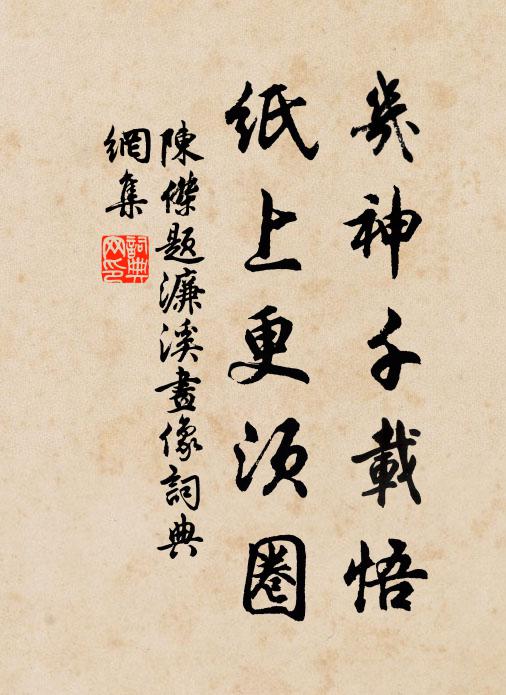 幾神千載悟
紙上更須圈
陳傑題濂溪畫像詞典
網集
詞典網印